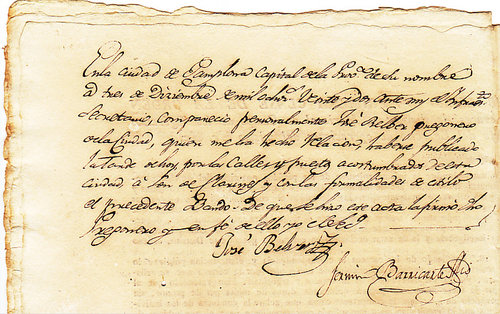 En la ciudad de Pamplona Capital de la Provª. de su nombre
a tres de Diciembre de mil ochos. Veinte y dos: Ante mi el Infrasc.
Secretario, Comparecio personalmente José Belber pregonero
de la Ciudad, quien me ha hecho relacion, haberse publicado
la tarde de hoy, por las Calles y puestos acostumbrados de esta
ciudad á son de Clarines y con las formalidades de estilo
el precedente Bando. De que se hizo este acto la firmó dho
Pregonero y en fé de ello yo el Secº.
José Belber
Fermin Barricarte